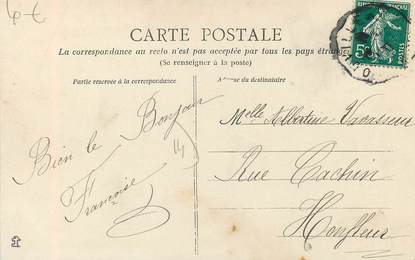 4-€
CARTE POSTALE
La correspondance au recto n'est pas acceptée par tous les pays étrangers
(Se renseigner à la poste)
Partie reservée à la correspondance
Adresse du destinataire
Bien le Bonjour
Françoise
14
Melle Albertine Vavasseur
Rue Cachin
Honfleur